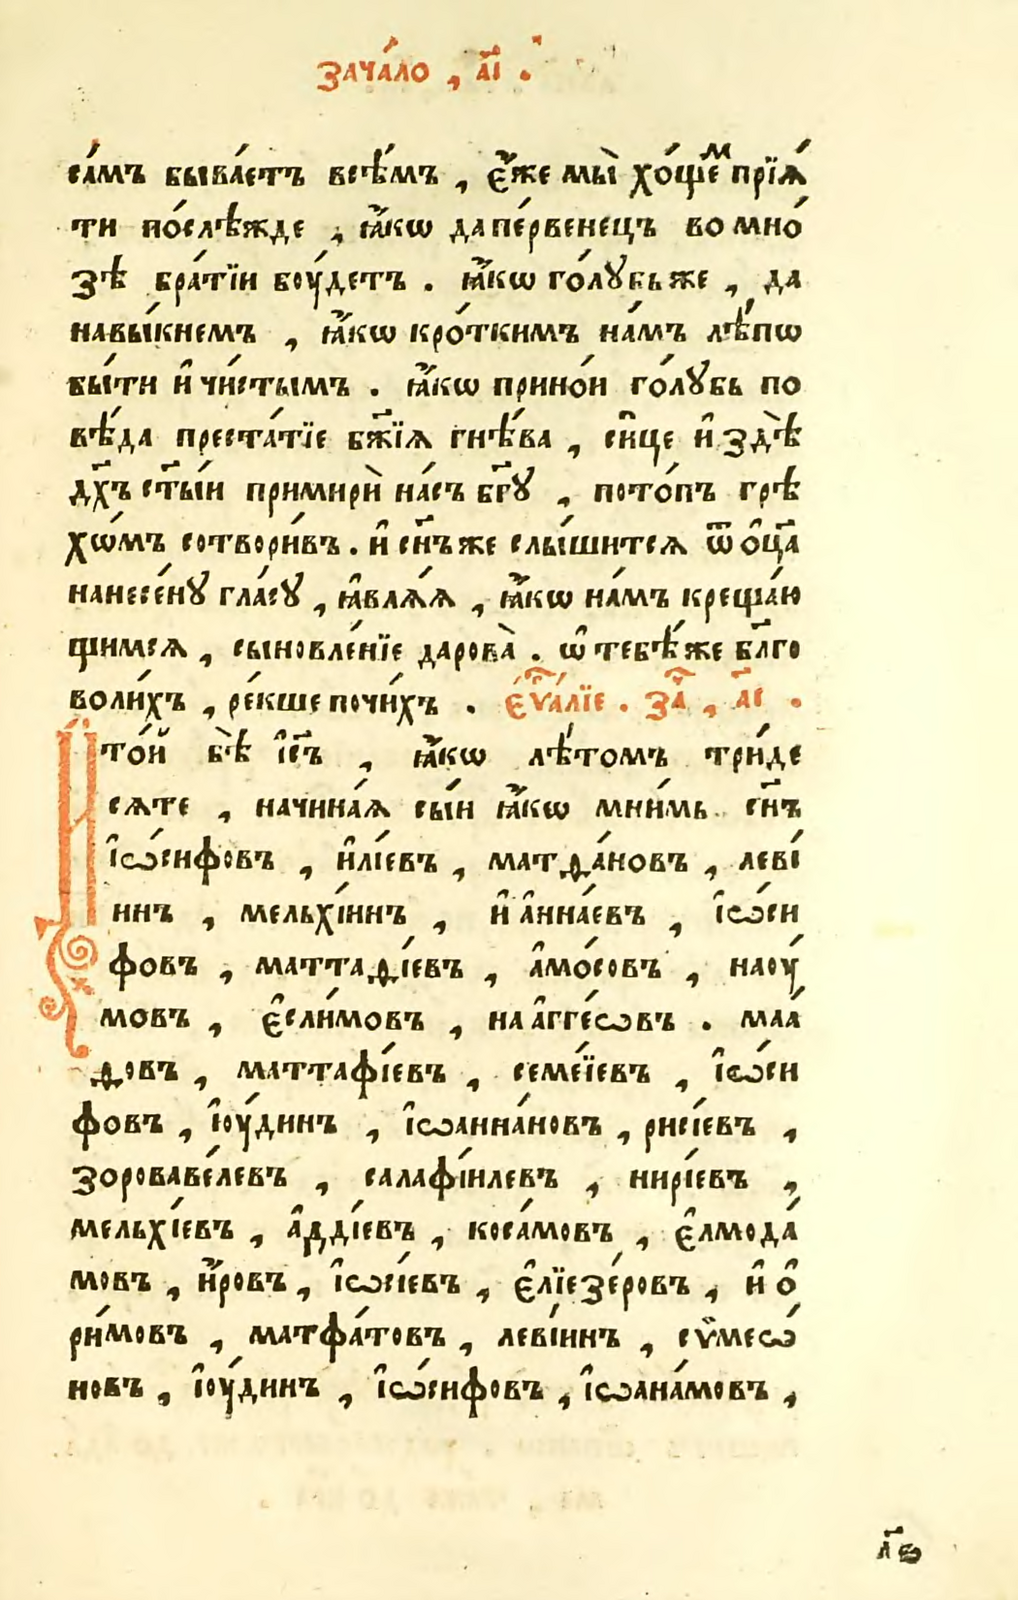 зача́ло , а҃і .
са́мъ быва́етъ все́мъ , є҆́же мы̀ хо́щеⷨ прїѧ́
ти по́слѣжде , ꙗ҆́кѡ да пе́рвенецъ во мно́
зѣ бра́тїи бꙋ́детъ . ꙗ҆́кѡ го́лꙋбь же , да
навы́кнемъ , ꙗ҆́кѡ кро́ткимъ на́мъ лѣ́пѡ
бы́ти и҆ чи́стымъ . ꙗ҆́кѡ при но́и го́лꙋбь по
вѣ́да преста́тїе бж҃їѧ гнѣ́ва , си́це и҆ здѣ̀
дх҃ъ ст҃ы́и примирѝ на́съ бг҃ꙋ , пото́пъ грѣ
хѡ́мъ сотвори́въ . и҆ сн҃ъ же слы́шитсѧ ѿ о҆ц҃а
нанесе́нꙋ гла́сꙋ , ꙗ҆влѧ́ѧ , ꙗ҆́кѡ на́мъ креща́ю
щимсѧ , сыновле́нїе дарова̀ . ѡ҆ тебѣ́ же бл҃го
воли́хъ , ре́кше почи́хъ . є҆ѵⷢ҇а́лїе . заⷱ҇ , а҃і .
И҆ то́й бѣ̀ і҆с҃ъ , ꙗ҆́кѡ лѣ́томъ три́де
сѧте , начина́ѧ сы́и ꙗ҆́кѡ мни́мь сн҃ъ
і҆ѡ́сифовъ , и҆лі́евъ , матѳа́новъ , леві́
инъ , мельхі́инъ , и҆ а҆нна́евъ , і҆ѡ́си
фовъ , маттаѳі́евъ , а҆мо́совъ , наꙋ́
мовъ , є҆сли́мовъ , на а҆гге́ѡвъ . маа́
ѳовъ , маттафі́евъ , семеїевъ , і҆ѡ́си
фовъ , і҆ꙋ́динъ , і҆ѡанна́новъ , рисі́евъ ,
зороваве́левъ , салафі́илевъ , нирі́евъ ,
мельхі́евъ , а҆дді́евъ , коса́мовъ , є҆лмода́
мовъ , и҆́ровъ , і҆ѡсі́евъ , є҆лїезе́ровъ , и҆ о҆
ри́мовъ , матфа́товъ , леві́инъ , сѵ҆меѡ́
новъ , і҆ꙋ́динъ , і҆ѡ́сифовъ , і҆ѡана́мовъ ,